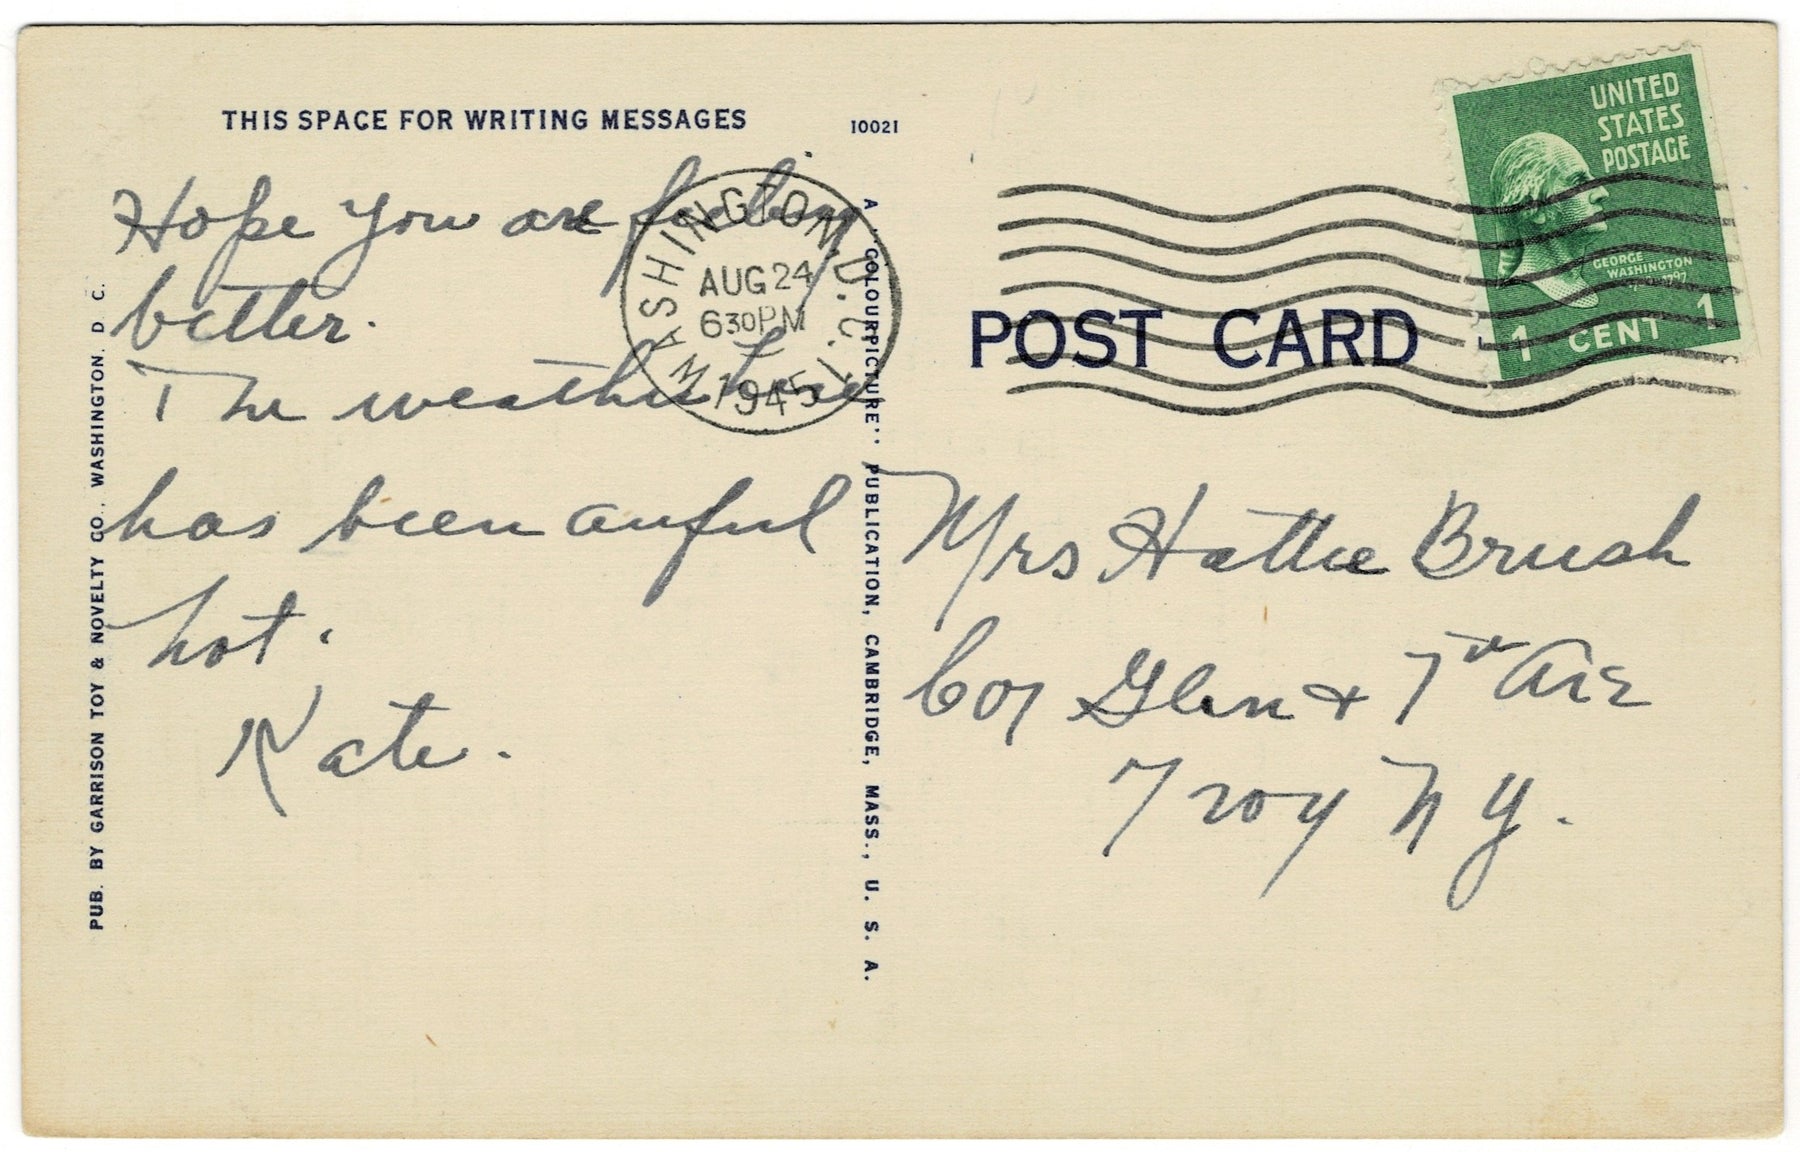 THIS SPACE FOR WRITING MESSAGES
10021
Hope you are feeling
better.
The weather here
has been awful
hot.
Kate.
PUB. BY GARRISON TOY & NOVELTY CO., WASHINGTON, D. C.
A "COLOURPICTURE" PUBLICATION, CAMBRIDGE, MASS., U. S. A.
WASHINGTON, D.C. 1
AUG 24
630PM
1945
UNITED
STATES
POSTAGE
GEORGE
WASHINGTON
1 CENT 1
POST CARD
Mrs Hattie Brush
Cor Glen + 7th Ave
Troy N Y.